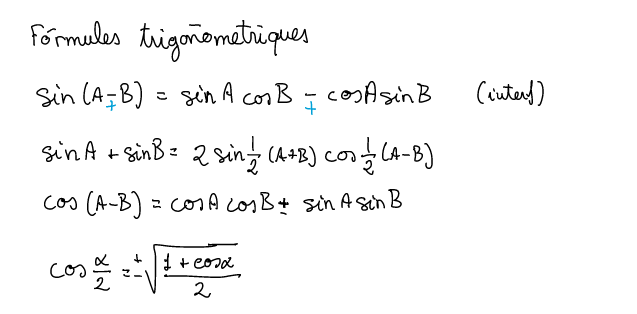 Fórmules trigonometriques
sin (A ∓ B) = sin A cos B ∓ cos A sin B (interf)
sin A + sin B = 2 sin 1/2 (A+B) cos 1/2 (A-B)
cos (A-B) = cos A cos B ± sin A sin B
cos α/2 = ±√((1 + cos α)/2)